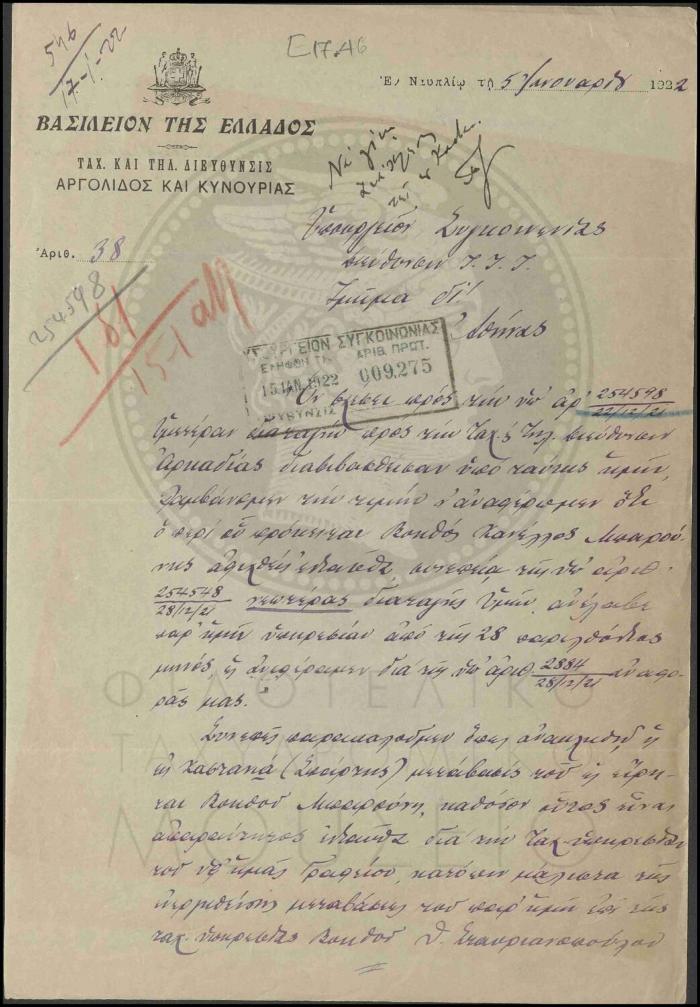 546
17-1-22
Ε17.Α6
Ἐν Ναυπλίῳ τῇ 5 Ἰανουαρίου 1922
ΒΑΣΙΛΕΙΟΝ ΤΗΣ ΕΛΛΑΔΟΣ
ΤΑΧ. ΚΑΙ ΤΗΛ. ΔΙΕΥΘΥΝΣΙΣ
ΑΡΓΟΛΙΔΟΣ ΚΑΙ ΚΥΝΟΥΡΙΑΣ
Νὰ γίνῃ
Ὑπουργεῖον Συγκοινωνίας
Διεύθυνσιν Τ.Τ.Τ.
Τμῆμα δι'
Ἀθήνας
Ἀριθ. 38
254598
181
15-1
ΥΠΟΥΡΓΕΙΟΝ ΣΥΓΚΟΙΝΩΝΙΑΣ
ΕΛΗΦΘΗ ΤΗ ΑΡΙΘ. ΠΡΩΤ.
15 ΙΑΝ. 1922 009.275
ΔΙΕΥΘΥΝΣΙΣ
Ἐν σχέσει πρὸς τὴν ὑπ' ἀρ. 254598
22/12/21
ὑμετέραν διαταγὴν πρὸς τὴν Ταχ. & Τηλ. Διεύθυνσιν
Ἀρκαδίας διαβιβασθεῖσαν ὑπὸ ταύτης ἡμῖν,
λαμβάνομεν τὴν τιμὴν ν' ἀναφέρωμεν ὅτι
ὁ περὶ οὗ πρόκειται Βοηθὸς Κανέλλος Μπαρού-
νης ἀφιχθεὶς ἐνταῦθα, συνεπείᾳ τῆς ὑπ' ἀριθ.
254548
28/12/21 νεωτέρας διαταγῆς Ὑμῶν, ἀνέλαβε
παρ' ἡμῖν ὑπηρεσίαν ἀπὸ τῆς 28 παρελθόντος
μηνός, ὡς ἀνεφέραμεν διὰ τῆς ὑπ' ἀριθ. 2884
28/12/21 ἀναφο-
ρᾶς μας.
Συνεπῶς παρακαλοῦμεν ὅπως ἀνακληθῇ ἡ
εἰς Καστανιὰ (Σπάρτης) μετάβασις τοῦ ὡς εἴρη-
ται Βοηθοῦ Μπαρούνη, καθόσον οὗτος εἶναι
ἀπαραίτητος ἐνταῦθα διὰ τὴν ταχ. ὑπηρεσίαν
τοῦ ὑφ' ἡμᾶς Γραφείου, κατόπιν μάλιστα τῆς
μεταβάσεως τοῦ παρ' ἡμῖν ἐπὶ τῆς
ταχ. ὑπηρεσίας Βοηθοῦ Θ. Σταυριανοπούλου
ΦΙΛΟΤΕΛΙΚΟ
ΜΟΥΣΕΙΟ